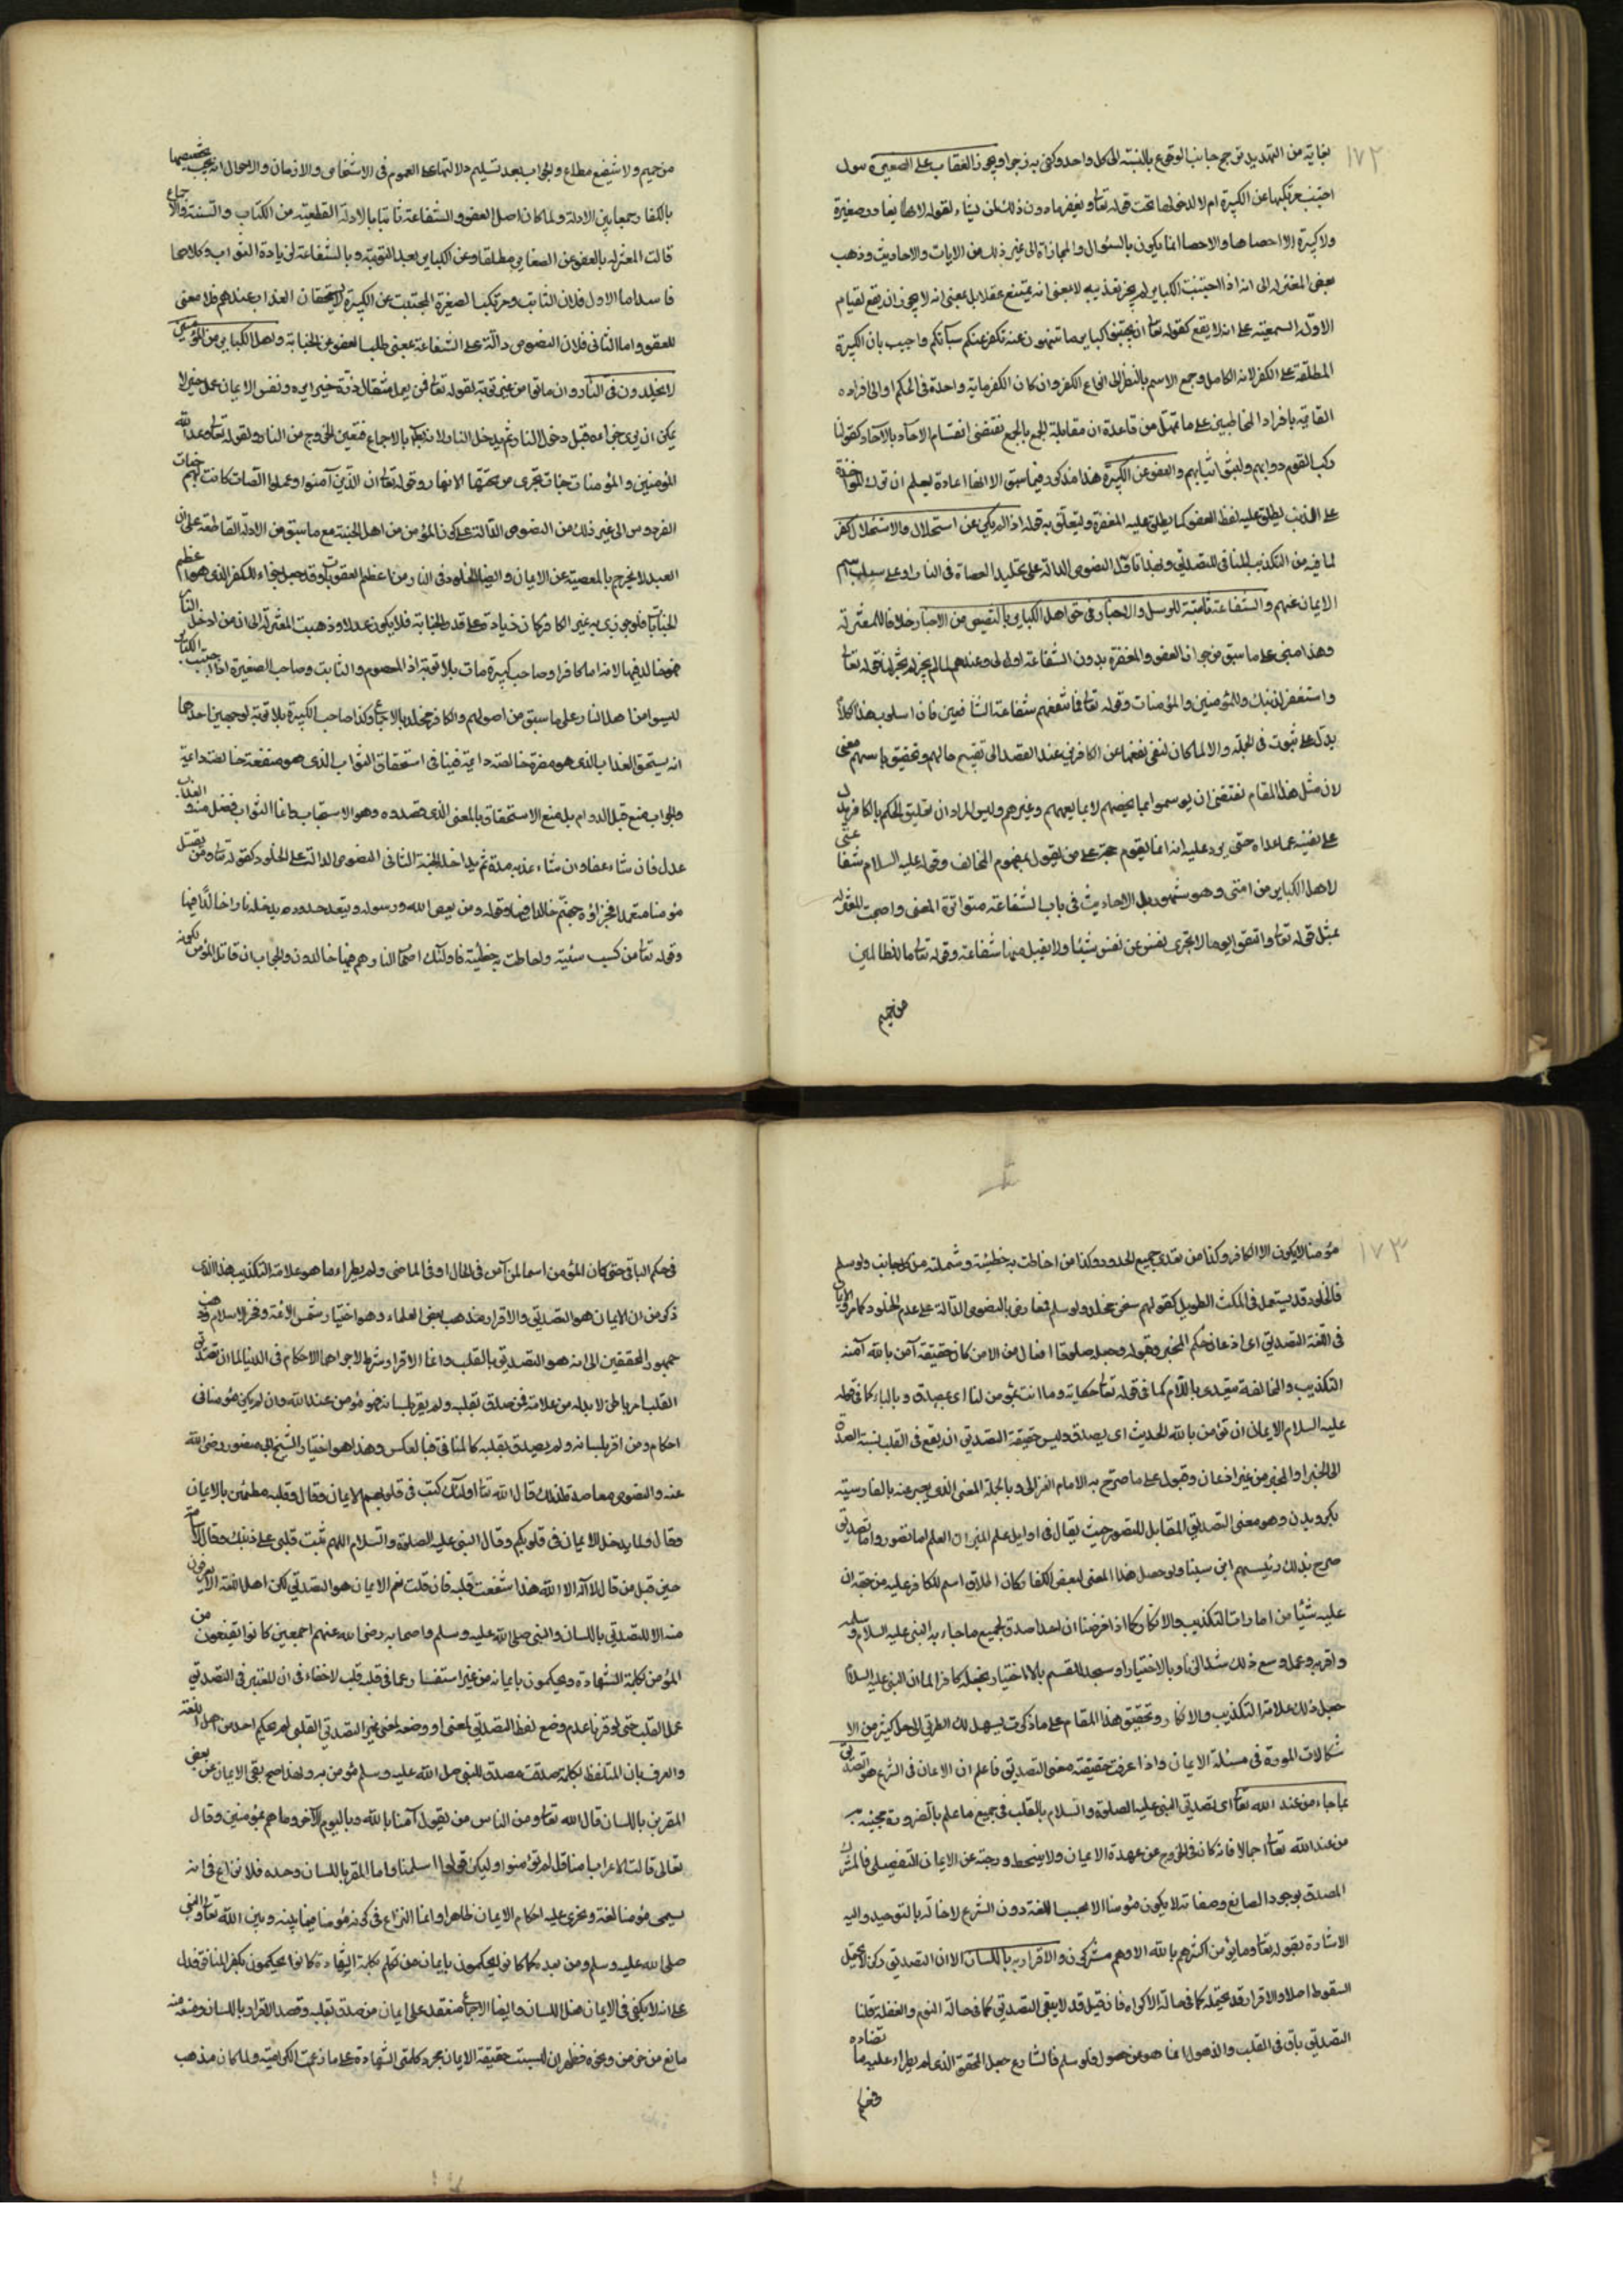 ١٧٢
بغايته من التهديد ترجح جانب الوقوع بالنسبة الى كل واحد وكفى به زجرا ويجوز العقاب على الصغيرة سواء
اجتنب مرتكبها عن الكبيرة ام لا لدخولها تحت قوله تعالى ويغفر ما دون ذلك لمن يشاء لقوله لا يغادر صغيرة
ولا كبيرة الا احصاها والاحصا انما يكون بالسؤال والمجازاة الى غير ذلك من الايات والاحاديث وذهب
بعض المعتزله الى انه اذا اجتنبت الكباير لم يجز تعذيبه لا بمعنى انه يمتنع عقلا بل بمعنى انه لا يجوز ان يقع لقيام
الادله السمعية على انه لا يقع كقوله تعالى ان تجتنبوا كباير ما تنهون عنه نكفر عنكم سيآتكم واجيب بان الكبيرة
المطلقة على الكفر لانه الكامل وجمع الاسم بالنظر الى انواع الكفر وان كان الكفر ملة واحدة فى الحكم او الى افراده
القايمة بافراد المخاطبين على ما تمهل من قاعدة ان مقابلة الجمع بالجمع يقتضى انقسام الاحاد بالاحاد كقولنا
ركب القوم دوابهم ولبسوا ثيابهم والعفو عن الكبيرة هذا مذكور فيما سبق الا انه اعاده ليعلم ان ترك المواخذة
على الذنب يطلق عليه لفظ العفو كما يطلق عليه المغفرة وليتعلق به قوله اذا لم يكن عن استحلال والاستحلال كفر
لما فيه من التكذيب المنافى للتصديق وبهذا تاول النصوص الدالة على تخليد العصاة فى النار او على سلب اسم
الايمان عنهم والشفاعة ثابتة للرسل والاخيار فى حق اهل الكباير بالمستفيض من الاخبار خلافا للمعتزله
وهذا مبنى على ما سبق من جواز العفو والمغفرة بدون الشفاعة اولى وعندهم لما لم يجز لم تجز لنا قوله تعالى
واستغفر لذنبك وللمؤمنين والمؤمنات وقوله تعالى فما تنفعهم شفاعة الشافعين فان اسلوب هذا الكلام
يدل على ثبوت فى الجملة والا لما كان لنفى نفعها عن الكافرين عند القصد الى تقبيح حالهم وتحقيق باسهم معنى
لان مثل هذا المقام يقتضى ان يوسموا بما يخصهم لا بما يعمهم وغيرهم وليس المراد ان تعليق الحكم بالكافر يدل
على نفيه عما عداه حتى يرد عليه انه انما يقوم حجة على من يقول بمفهوم المخالف وقوله عليه السلام شفاعتى
لاهل الكباير من امتى وهو مشهور بل الاحاديث فى باب الشفاعة متواترة المعنى واحتجت المعتزله
بمثل قوله تعالى واتقوا يوما لا تجزى نفس عن نفس شيئا ولا يقبل منها شفاعة وقوله تعالى ما للظالمين
من حميم
من حميم ولا شفيع يطاع والجواب بعد تسليم دلالتها على العموم فى الاشخاص والازمان والاحوال انه يجب تخصيصها
بالكفار جمعا بين الادلة ولما كان اصل العفو والشفاعة ثابتا بالادلة القطعية من الكتاب والسنة والاجماع
قالت المعتزله بالعفو عن الصغاير مطلقا وعن الكباير بعد التوبة وبالشفاعة لزيادة الثواب وكلاهما
فاسد اما الاول فلان التائب ومرتكب الصغيرة المجتنب عن الكبيرة لا يستحقان العذاب عندهم فلا معنى
للعفو واما الثانى فلان النصوص دالة على الشفاعة بمعنى طلب العفو عن الجناية واهل الكباير من المؤمنين
لا يخلدون فى النار وان ماتوا من غير توبة لقوله تعالى فمن يعمل مثقال ذرة خيرا يره ونفس الايمان عمل خير لا
يمكن ان يرى جزاءه قبل دخول النار ثم يدخل النار ولانه باطل بالاجماع فتعين الخروج من النار ولقوله تعالى وعد الله
المؤمنين والمؤمنات جنات تجرى من تحتها الانهار وقوله تعالى ان الذين آمنوا وعملوا الصالحات كانت لهم جنات
الفردوس الى غير ذلك من النصوص الدالة على كون المؤمن من اهل الجنة مع ما سبق من الادلة القاطعة على ان
العبد لا يخرج بالمعصية عن الايمان وايضا الخلود فى النار من اعظم العقوبات وقد جعل جزاء للكفر الذى هو اعظم
الجنايات فلو جوزى به غير الكافر كان زيادة على قدر الجناية فلا يكون عدلا وذهبت المعتزله الى ان من ادخل النار
فهو خالد فيها لانه اما كافر او صاحب كبيرة مات بلا توبة اذ المعصوم والتايب وصاحب الصغيرة اذا اجتنب الكباير
ليسوا من اهل النار على ما سبق من اصولهم والكافر مخلد بالاجماع وكذا صاحب الكبيرة بلا توبة لوجهين احدهما
انه يستحق العذاب الذى هو مضرة خالصة دايمة فينافى استحقاق الثواب الذى هو منفعة خالصة دايمة
والجواب منع قيد الدوام بل منع الاستحقاق بالمعنى الذى قصدوه وهو الاستيجاب وانما الثواب فضل منه والعذاب
عدل فان شاء عفا وان شاء عذبه مدة ثم يدخله الجنة الثانى النصوص الدالة على الخلود كقوله تعالى ومن يقتل
مؤمنا متعمدا فجزاؤه جهنم خالدا فيها وقوله ومن يعص الله ورسوله ويتعد حدوده يدخله نارا خالدا فيها
وقوله تعالى من كسب سيئة واحاطت به خطيئته فاولئك اصحاب النار هم فيها خالدون والجواب ان قاتل المؤمن لكونه
١٧٣
مؤمنا لا يكون الا الكافر وكذا من تعدى جميع الحدود وكذا من احاطت به خطيئته وشملته من كل جانب ولو سلم
فالخلود قد يستعمل فى المكث الطويل كقولهم سجن مخلد ولو سلم فمعارض بالنصوص الدالة على عدم الخلود كما مر والايمان
فى اللغة التصديق اى اذعان حكم المخبر وقبوله وجعله صادقا افعال من الامن كان حقيقة آمن بالله آمنه
التكذيب والمخالفة يتعدى باللام كما فى قوله تعالى حكاية وما انت بمؤمن لنا اى بمصدق وبالباء كما فى قوله
عليه السلام الايمان ان تؤمن بالله الحديث اى يصدق وليس حقيقة التصديق ان يقع فى القلب نسبة الصدق
الى الخبر او المخبر من غير اذعان وقبول على ما صرح به الامام الغزالى وبالجملة المعنى الذى يعبر عنه بالفارسية
بكرويدن وهو معنى التصديق المقابل للتصور حيث يقال فى اوايل علم الميزان العلم اما تصور واما تصديق
صرح بذلك رئيسهم ابن سينا ولو حصل هذا المعنى لبعض الكفار كان اطلاق اسم الكافر عليه من جهة ان
عليه شيئا من امارات التكذيب والانكار كما اذا فرضنا ان احدا صدق بجميع ما جاء به النبى عليه السلام وسلمه
واقر به وعمل ومع ذلك شد الزنار بالاختيار او سجد للصنم بالاختيار نجعله كافرا لما ان النبى عليه السلام
جعل ذلك علامة التكذيب والانكار وتحقيق هذا المقام على ما ذكرت يسهل لك الطريق الى حل كثير من الا
شكالات الموردة فى مسئلة الايمان واذا عرفت حقيقة معنى التصديق فاعلم ان الايمان فى الشرع هو التصديق
بما جاء من عند الله تعالى اى تصديق النبى عليه الصلوة والسلام بالقلب فى جميع ما علم بالضرورة مجيئه به
من عند الله تعالى اجمالا فانه كاف فى الخروج عن عهدة الايمان ولا ينحط درجته عن الايمان التفصيلى فالمشرك
المصدق بوجود الصانع وصفاته لا يكون مؤمنا الا بحسب اللغة دون الشرع لاخلاله بالتوحيد واليه
الاشارة بقوله تعالى وما يؤمن اكثرهم بالله الا وهم مشركون والاقرار به باللسان الا ان التصديق ركن لا يحتمل
السقوط اصلا والاقرار قد يحتمله كما فى حالة الاكراه فان قيل قد لا يبقى التصديق كما فى حالة النوم والغفلة قلنا
التصديق باق فى القلب والذهول انما هو عن حصوله ولو سلم فالشارع جعل المحقق الذى لم يطراء عليه ما تضاده
فى حكم الباقى حتى كان المؤمن اسما لمن آمن فى الحال او فى الماضى ولم يطراء ما هو علامة التكذيب هذا الذى
ذكر من ان الايمان هو التصديق والاقرار مذهب بعض العلماء وهو اختيار شمس الائمة وفخر الاسلام وذهب
جمهور المحققين الى انه هو التصديق بالقلب وانما الاقرار شرط لاجراء الاحكام فى الدنيا لما ان تصديق
القلب امر باطن لا بد له من علامة فمن صدق بقلبه ولم يقر بلسانه فهو مؤمن عند الله وان لم يكن مؤمنا فى
احكام ومن اقر بلسانه ولم يصدق بقلبه كالمنافق فبالعكس وهذا هو اختيار الشيخ ابى منصور رضى الله
عنه والنصوص معاضدة لذلك قال الله تعالى اولئك كتب فى قلوبهم الايمان وقال وقلبه مطمئن بالايمان
وقال ولما يدخل الايمان فى قلوبكم وقال النبى عليه الصلوة والسلام اللهم ثبت قلبى على دينك وقال لاسامة
حين قتل من قال لا اله الا الله هلا شققت قلبه فان قلت نعم الايمان هو التصديق لكن اهل اللغة لا يعرفون
منه الا التصديق باللسان والنبى صلى الله عليه وسلم واصحابه رضى الله عنهم اجمعين كانوا يقنعون من
المؤمن بكلمة الشهادة ويحكمون بايمانه من غير استفسار عما فى قلبه قلت لا خفاء فى ان المعتبر فى التصديق
عمل القلب حتى لو فرضنا عدم وضع لفظ التصديق لمعنى او وضعه لمعنى غير التصديق القلبى لم يحكم احد من اهل اللغة
والعرف بان المتلفظ بكلمة صدقت مصدق للنبى صلى الله عليه وسلم مؤمن به ولهذا صح نفى الايمان عن بعض
المقرين باللسان قال الله تعالى ومن الناس من يقول آمنا بالله وباليوم الآخر وما هم بمؤمنين وقال
تعالى قالت الاعراب امنا قل لم تؤمنوا ولكن قولوا اسلمنا واما المقر باللسان وحده فلا نزاع فى انه
يسمى مؤمنا لغة وتجرى عليه احكام الايمان ظاهرا وانما النزاع فى كونه مؤمنا فيما بينه وبين الله تعالى والنبى
صلى الله عليه وسلم ومن بعده كما كانوا يحكمون بايمان من تكلم بكلمة الشهادة كانوا يحكمون بكفر المنافق فدل
على انه لا يكفى فى الايمان فعل اللسان وايضا الاجماع منعقد على ايمان من صدق بقلبه وقصد الاقرار باللسان ومنعه منه
مانع من خرس ونحوه فظهر ان ليست حقيقة الايمان مجرد كلمتى الشهادة على ما زعمت الكرامية ولما كان مذهب